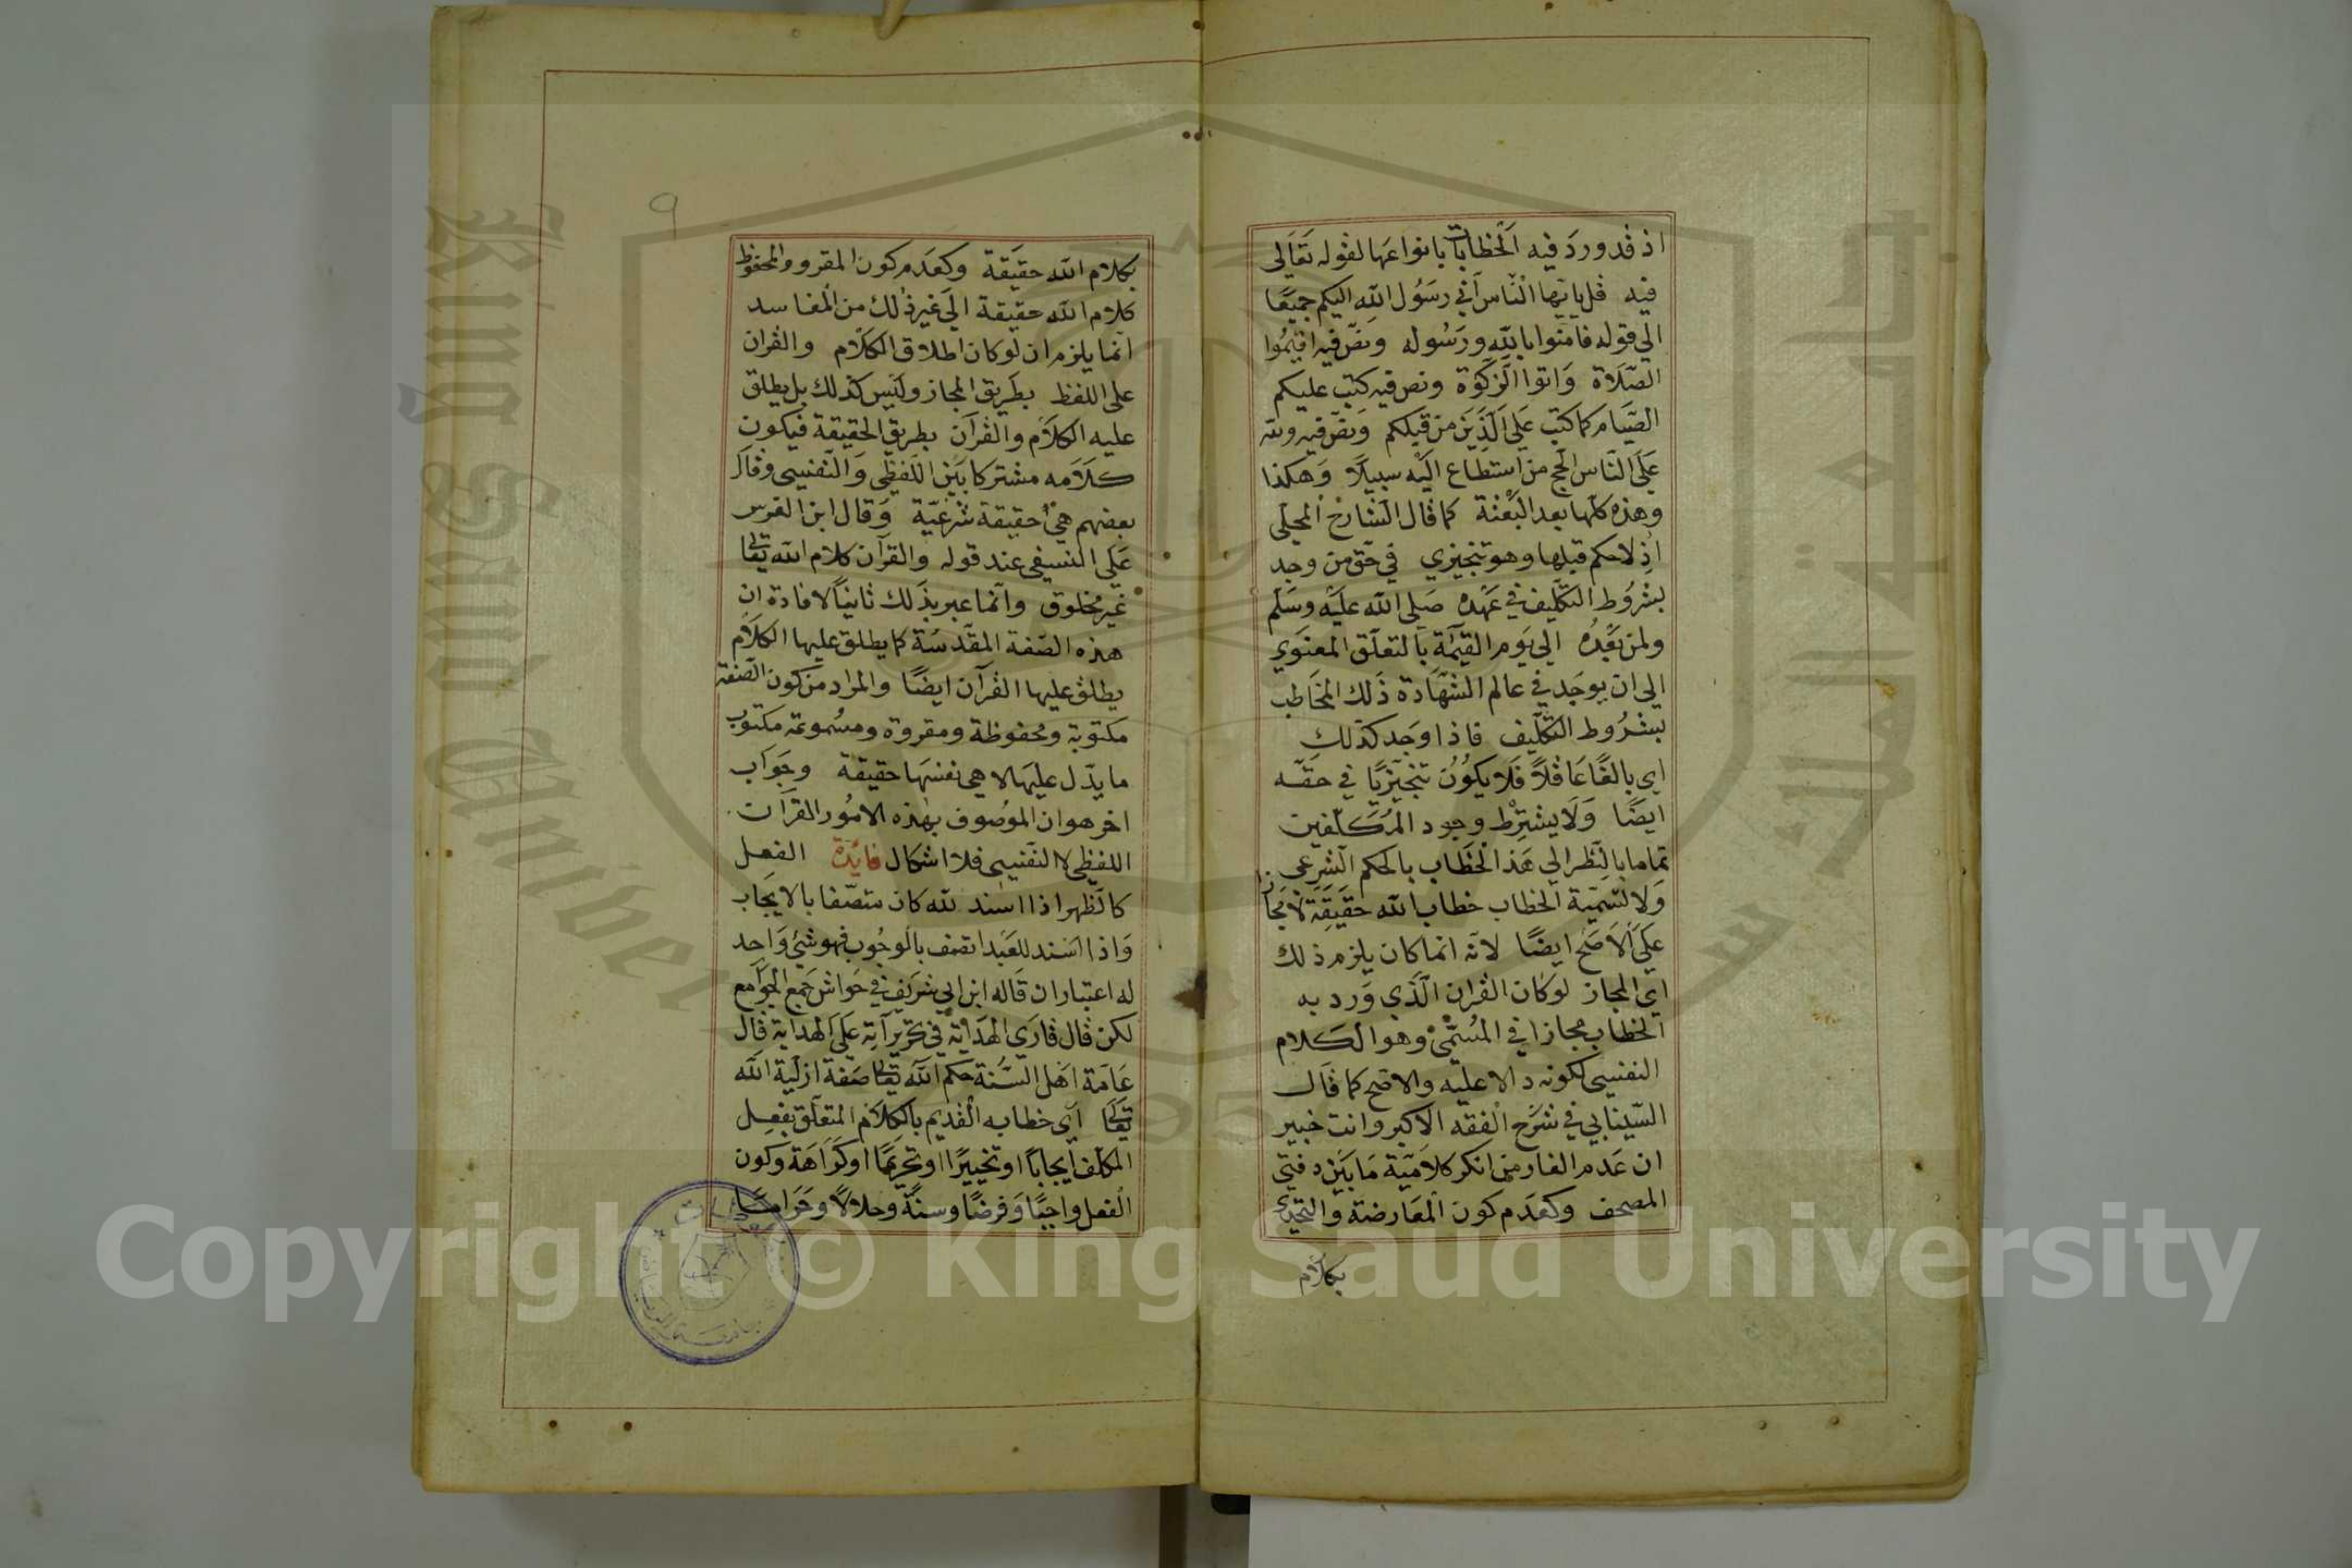 اذ قد ورد فيه الخطابات بانواعها لقوله تعالى
فيه قل يايها الناس اني رسول الله اليكم جميعا
الي قوله فامنوا بالله ورسوله ونص فيه اقيموا
الصلاة واتوا الزكوة ونص فيه كتب عليكم
الصيام كما كتب علي الذين من قبلكم ونص فيه ولله
علي الناس الحج من استطاع اليه سبيلا وهكذا
وهذه كلها بعد البعثة كما قال الشارح المحلي
اذ لا حكم قبلها وهو تنجيزي في حق من وجد
بشروط التكليف في عهده صلي الله عليه وسلم
ولمن بعده الي يوم القيمة بالتعلق المعنوي
الي ان يوجد في عالم الشهادة ذلك المخاطب
بشروط التكليف فاذا وجد كذلك
اي بالغا عاقلا فلا يكون تنجيزيا في حقه
ايضا ولا يشترط وجود المكلفين
تماما بالنظر الي هذا الخطاب بالحكم الشرعي
ولا لتسمية الخطاب خطاب الله حقيقة لا مجازا
علي الاصح ايضا لانه انما كان يلزم ذلك
اي المجاز لو كان القران الذي ورد به
الخطاب مجازا في المسمى وهو الكلام
النفسي لكونه دالا عليه والاصح كما قال
السينابي في شرح الفقه الاكبر وانت خبير
ان عدم اكفار من انكر كلامية ما بين دفتي
المصحف وكعدم كون المعارضة والتحدي
بكلام
٩
بكلام الله حقيقة وكعدم كون المقرو والمحفوظ
كلام الله حقيقة الي غير ذلك من المفاسد
انما يلزم ان لو كان اطلاق الكلام والقران
علي اللفظ بطريق المجاز وليس كذلك بل يطلق
عليه الكلام والقرآن بطريق الحقيقة فيكون
كلامه مشتركا بين اللفظي والنفسي وقال
بعضهم هي حقيقة شرعية وقال ابن الغرس
علي النسفي عند قوله والقرآن كلام الله تعالى
غير مخلوق وانما عبر بذلك ثانيا لافادة ان
هذه الصفة المقدسة كما يطلق عليها الكلام
يطلق عليها القرآن ايضا والمراد من كون الصفة
مكتوبة ومحفوظة ومقروة ومسموعة مكتوب
ما يدل عليها لا هي نفسها حقيقة وجواب
اخر هو ان الموصوف بهذه الامور القرآن
اللفظي لا النفسي فلا اشكال فايدة الفعل
كالظهر اذا اسند لله كان متصفا بالايجاب
واذا اسند للعبد اتصف بالوجوب فهو شئ واحد
له اعتباران قاله ابن ابي شريف في حواش جمع الجوامع
لكن قال قاري الهداية في تحريراته علي الهداية قال
عامة اهل السنة حكم الله تعالى صفة ازلية الله
تعالى اي خطابه القديم بالكلام المتعلق بفعل
المكلف ايجابا او تخييرا او تحريما او كراهة وكون
الفعل واجبا وفرضا وسنة وحلالا وحراما
Copyright © King Saud University